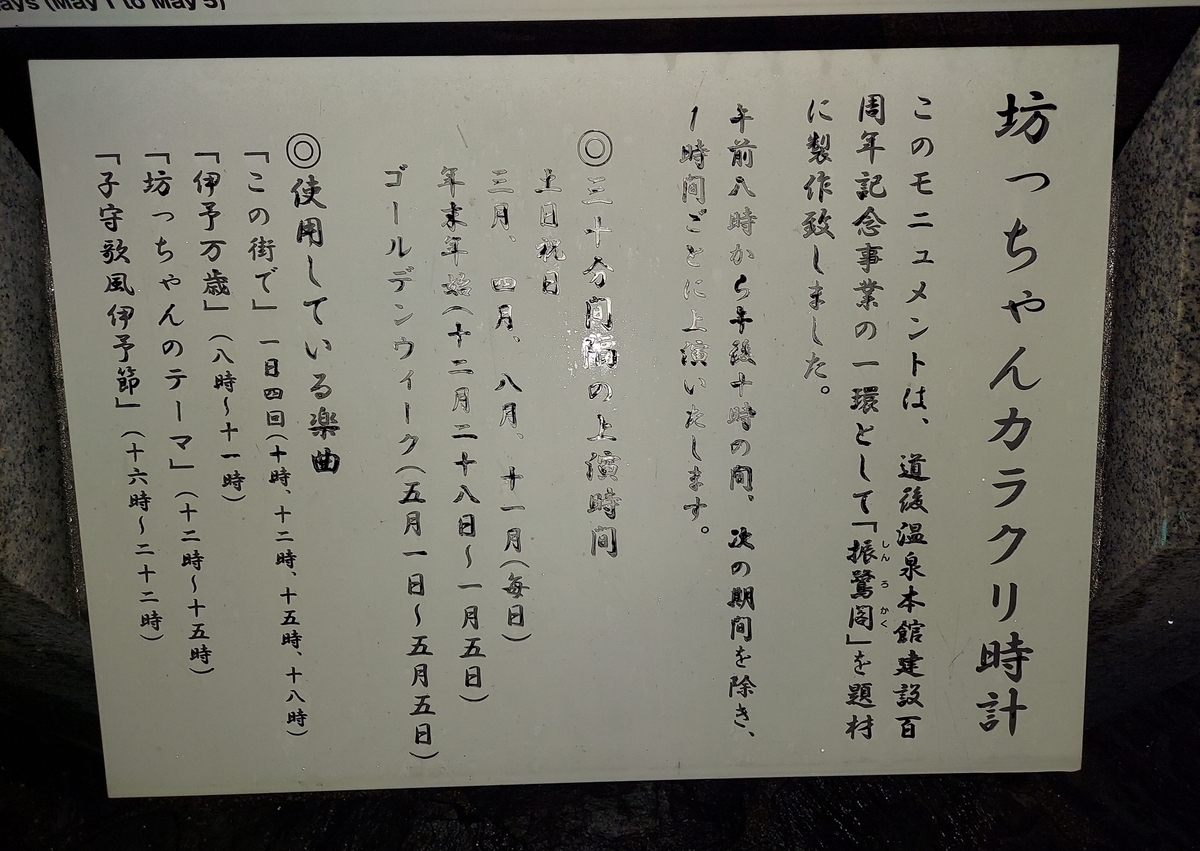 ays (May 1 to May 5)
坊っちゃんカラクリ時計
このモニュメントは、道後温泉本館建設百
周年記念事業の一環として「振鷺閣」を題材
しんろかく
に製作致しました。
午前八時から午後十時の間、次の期間を除き、
1時間ごとに上演いたします。
◎三十分間隔の上演時間
土日祝日
三月、四月、八月、十一月(毎日)
年末年始(十二月二十八日～一月五日)
ゴールデンウィーク(五月一日～五月五日)
◎使用している楽曲
「この街で」一日四回(十時、十二時、十五時、十八時)
「伊予万歳」(八時～十一時)
「坊っちゃんのテーマ」(十二時～十五時)
「子守歌風伊予節」(十六時～二十二時)